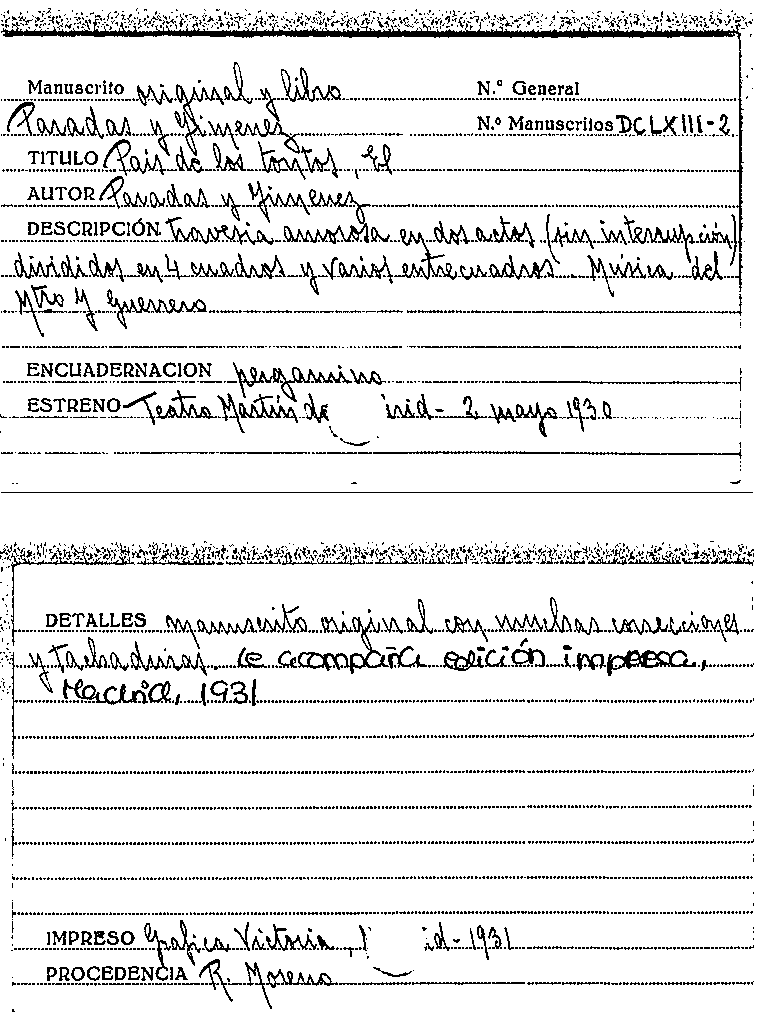 Manuscrito original y libro N.º General
Paradas y Jimenez N.º Manuscritos DCLXIII-2
TITULO Pais de los tontos, El
AUTOR Paradas y Jimenez
DESCRIPCIÓN travesia amorosa en dos actos (sin interrupción)
divididos en 4 cuadros y varios entrecuadros. Música del
Mtro Guerrero
ENCUADERNACION pergamino
ESTRENO Teatro Martín de id - 2 mayo 1930
DETALLES manuscrito original con muchas correcciones
y tachaduras. le acompaña edición impresa,
Madrid, 1931
IMPRESO Grafica Victoria, id - 1931
PROCEDENCIA R. Moreno